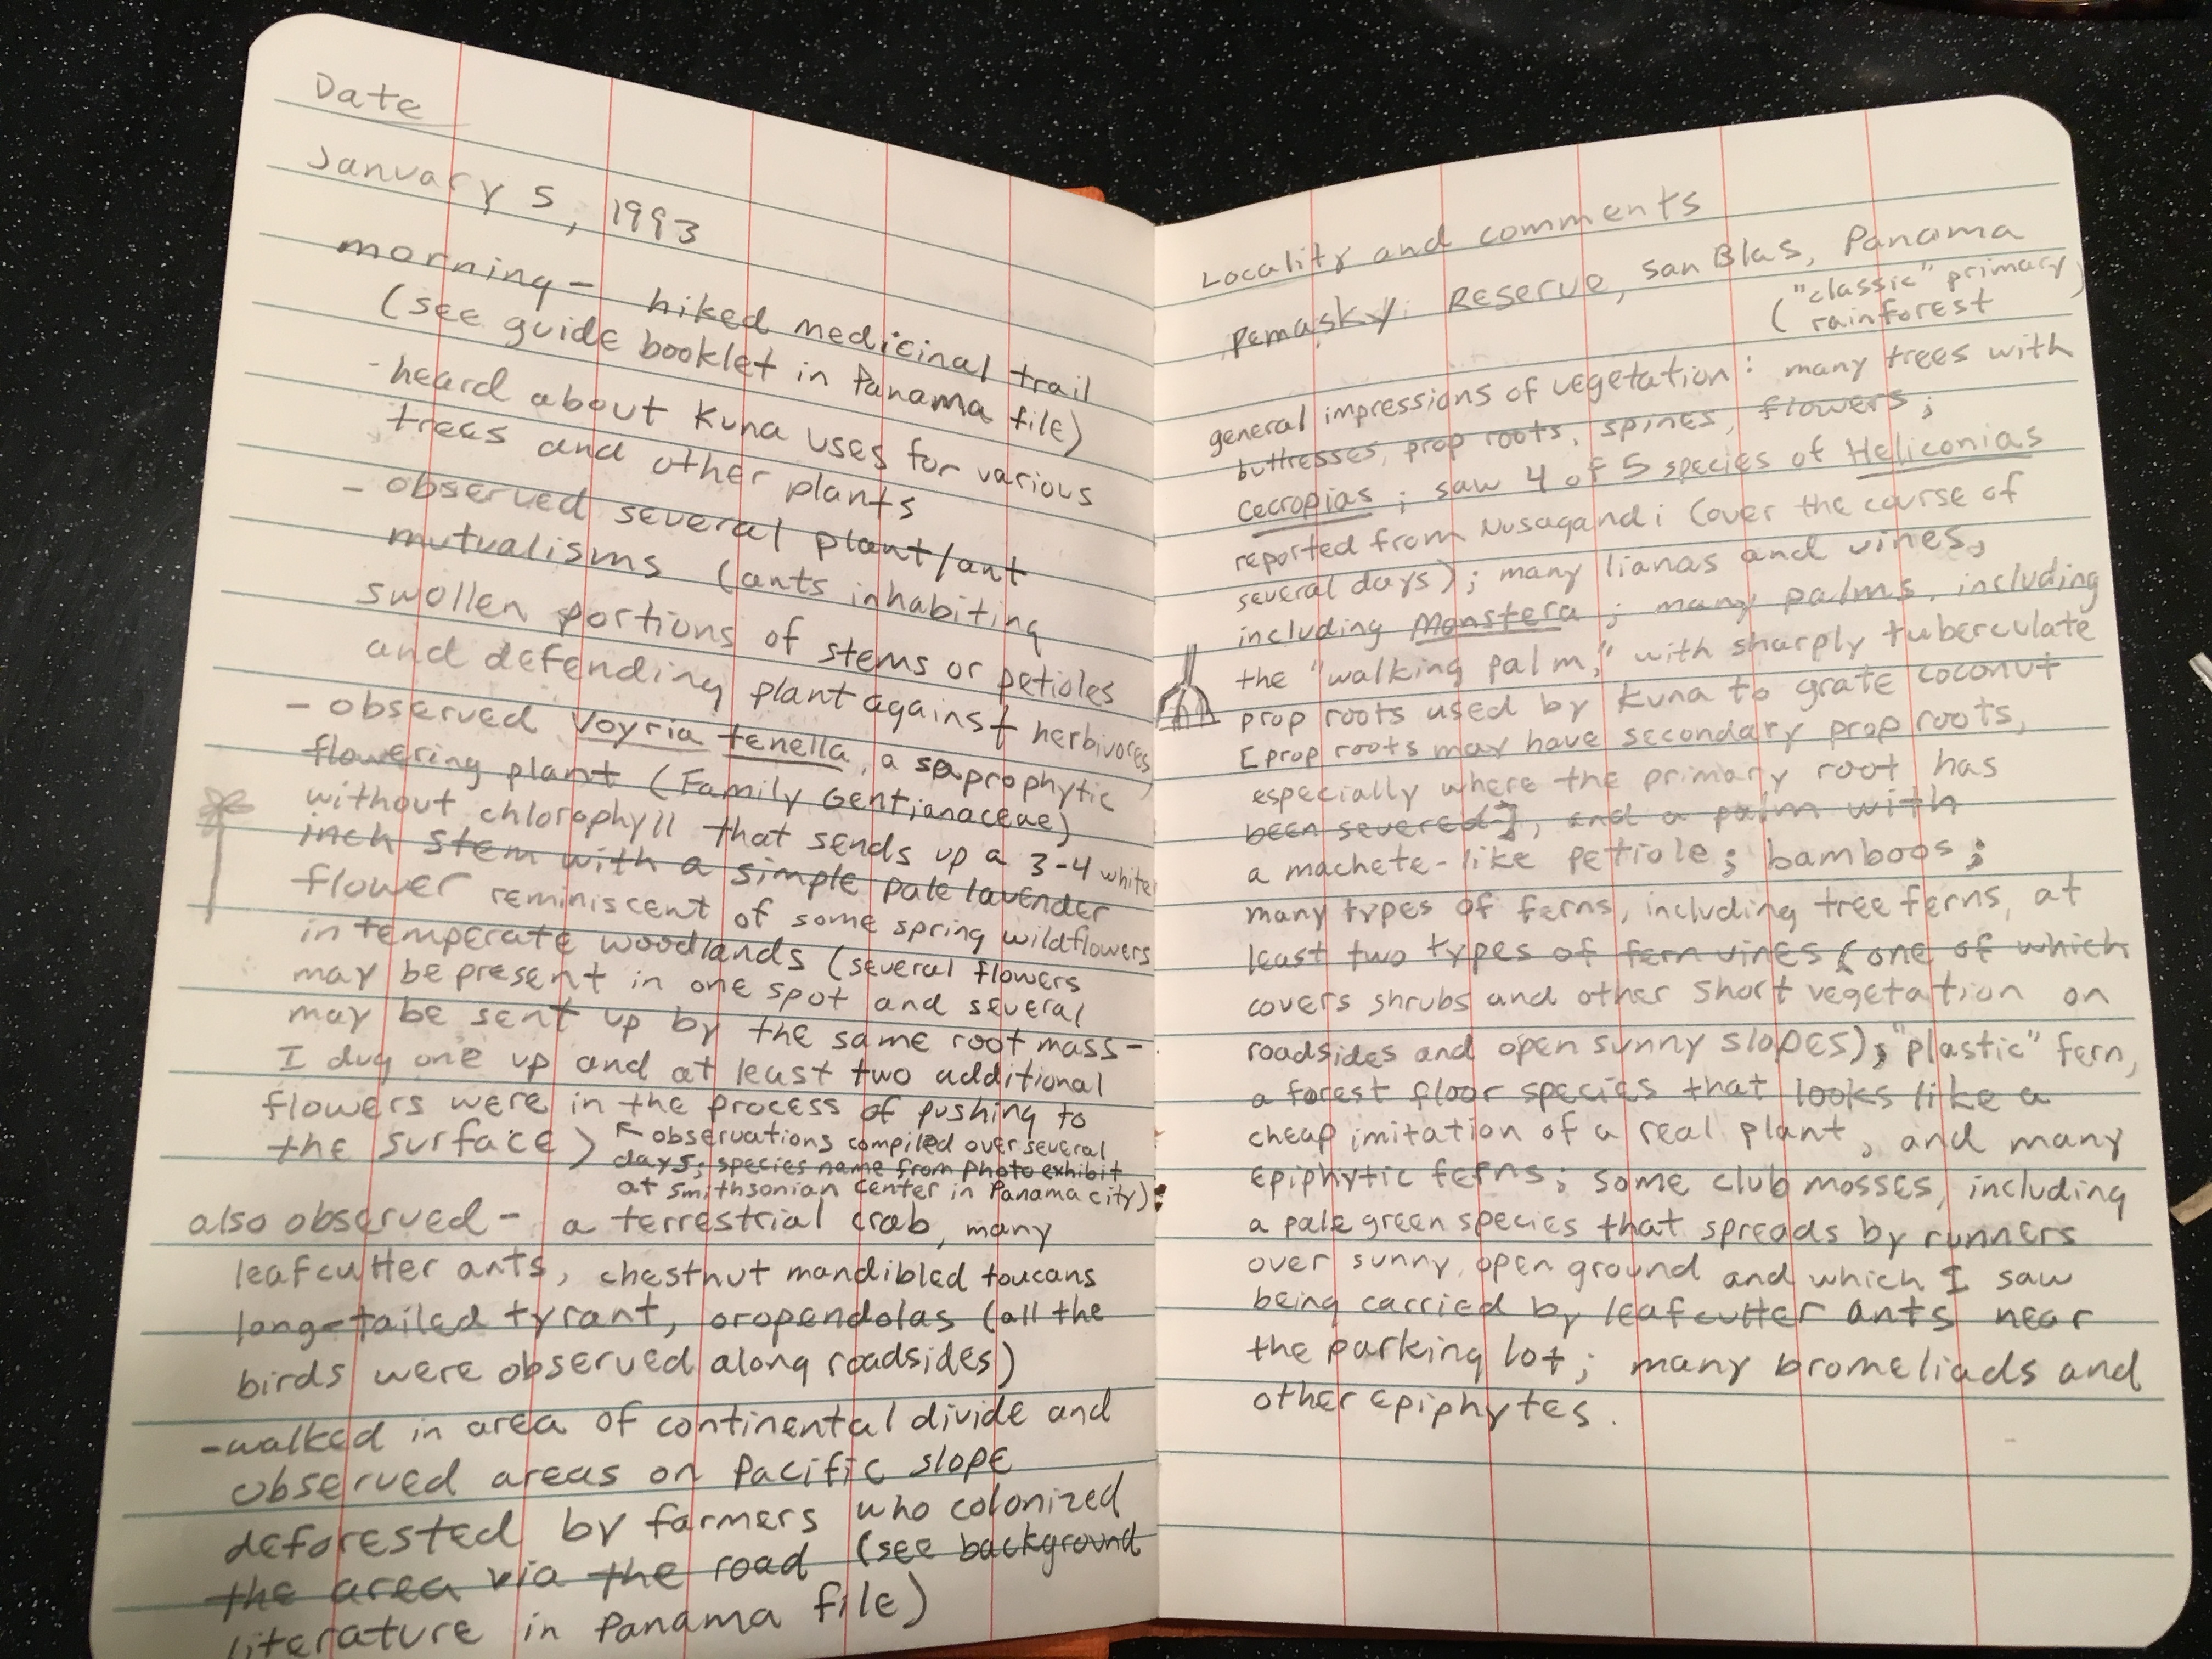 Date
January 5, 1993
morning - hiked medicinal trail
(see guide booklet in Panama file)
- heard about Kuna uses for various
trees and other plants
- observed several plant/ant
mutualisms (ants inhabiting
swollen portions of stems or petioles
and defending plant against herbivores)
- observed Voyria tenella, a saprophytic
flowering plant (Family Gentianaceae)
without chlorophyll that sends up a 3-4
inch stem with a simple pale lavender white
flower reminiscent of some spring wildflowers
in temperate woodlands (several flowers
may be present in one spot and several
may be sent up by the same root mass -
I dug one up and at least two additional
flowers were in the process of pushing to
the surface)
observations compiled over several
days; species name from photo exhibit
at Smithsonian center in Panama City)
also observed - a terrestrial crab, many
leafcutter ants, chestnut mandibled toucans
long-tailed tyrant, oropendolas (all the
birds were observed along roadsides)
- walked in area of continental divide and
observed areas on Pacific slope
deforested by farmers who colonized
the area via the road (see background
literature in Panama file)
Locality and comments
Pemasky Reserve, San Blas, Panama
("classic" primary
rainforest)
general impressions of vegetation: many trees with
buttresses, prop roots, spines, flowers;
Cecropias; saw 4 of 5 species of Heliconias
reported from Nusagandi (over the course of
several days); many lianas and vines,
including Monstera; many palms, including
the "walking palm," with sharply tuberculate
prop roots used by Kuna to grate coconut
[prop roots may have secondary prop roots,
especially where the primary root has
been severed], and a palm with
a machete-like petiole; bamboos;
many types of ferns, including tree ferns, at
least two types of fern vines (one of which
covers shrubs and other short vegetation on
roadsides and open sunny slopes); "plastic" fern,
a forest floor species that looks like a
cheap imitation of a real plant, and many
epiphytic ferns; some club mosses, including
a pale green species that spreads by runners
over sunny, open ground and which I saw
being carried by leafcutter ants near
the parking lot; many bromeliads and
other epiphytes.